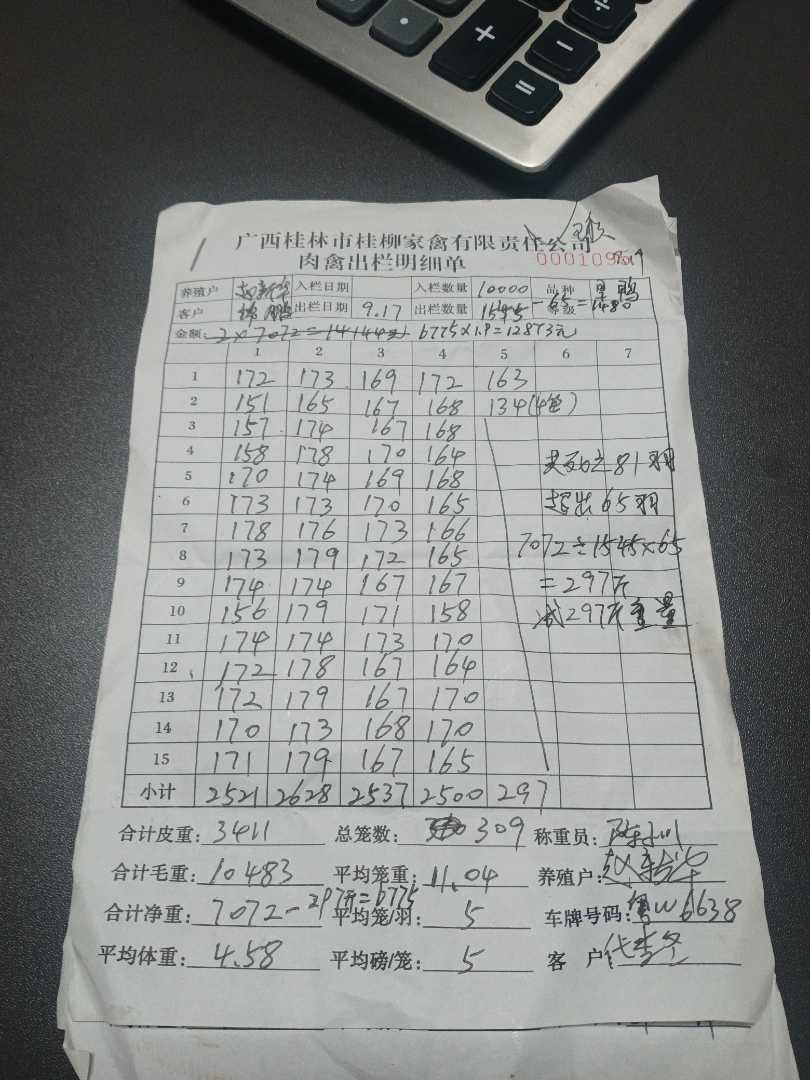 广西桂林市桂柳家禽有限责任公司
肉禽出栏明细单
养殖户 赵新华 入栏日期 入栏数量 10000 品种
客户 出栏日期 9.17 出栏数量 1545 - 65 = 1480 等级
金额: 2×7072=14144元 6775×1.9=12873元
1 2 3 4 5 6 7
1 172 173 169 172 163
2 151 165 167 168 134(4笼)
3 157 174 167 168
4 158 178 170 164
5 170 174 169 168
6 173 173 170 165
7 178 176 173 166
8 173 179 172 165
9 174 174 167 167
10 156 179 171 158
11 174 174 173 170
12 172 178 167 164
13 172 179 167 170
14 170 173 168 170
15 171 179 167 165
小计 2521 2628 2537 2500 297
81羽
超出65羽
7072÷1545×65
=297斤
减297斤重量
合计皮重: 3411 总笼数: 309 称重员:
合计毛重: 10483 平均笼重: 11.04 养殖户: 赵新华
合计净重: 7072-297斤=6775 平均笼/羽: 5 车牌号码: 粤W6638
平均体重: 4.58 平均磅/笼: 5 客 户